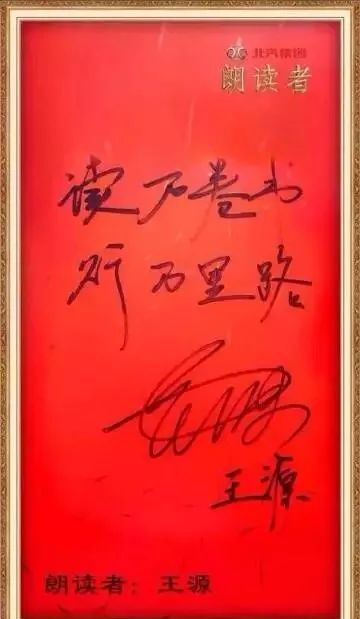 北汽集团
朗读者
读万卷书
行万里路
王源
朗读者：王源